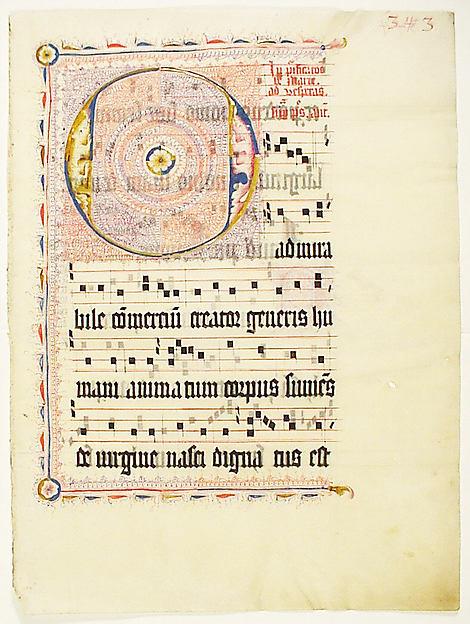 343
In
Marie.
ad vesperas.
O
admira
bile cōmerciū creator generis hu
mani animatum corpus sumēs
de virgine nasci digna tus est